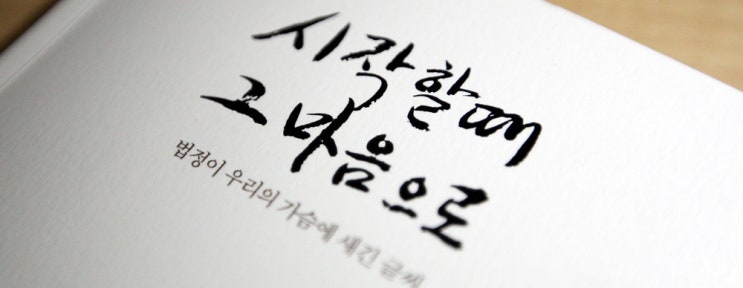 시작할때
그마음으로
법정이 우리의 가슴에 새긴 글씨